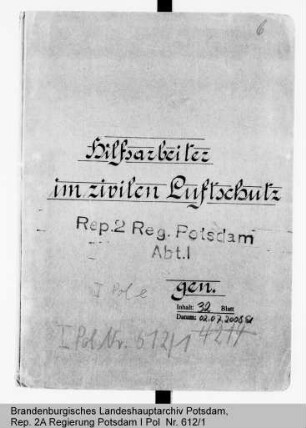 6
Hilfsarbeiter
im zivilen Luftschutz
Rep.2 Reg. Potsdam
Abt.I
I Pol e
gen.
Inhalt: 32 Blatt
Datum: 02.07.2008
I Pol Nr. 612/1
Brandenburgisches Landeshauptarchiv Potsdam,
Rep. 2A Regierung Potsdam I Pol Nr. 612/1